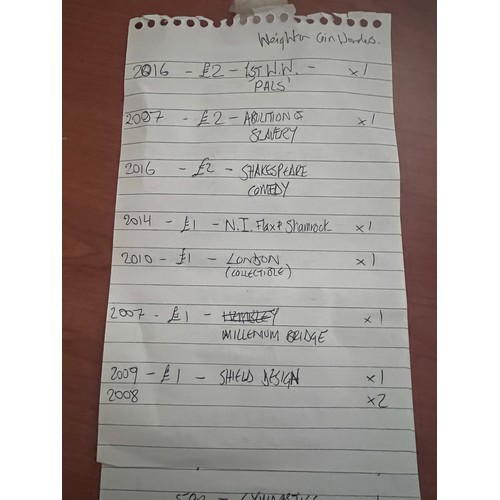 2016 - £2 - 1ST W.W. - x1
PALS'
2007 - £2 - ABOLITION OF x1
SLAVERY
2016 - £2 - SHAKESPEARE
COMEDY
2014 - £1 - N.I. Flax & Shamrock x1
2010 - £1 - LONDON x1
(COLLECTIBLE)
2007 - £1 - x1
MILLENIUM BRIDGE
2009 - £1 - SHIELD DESIGN x1
2008 x2